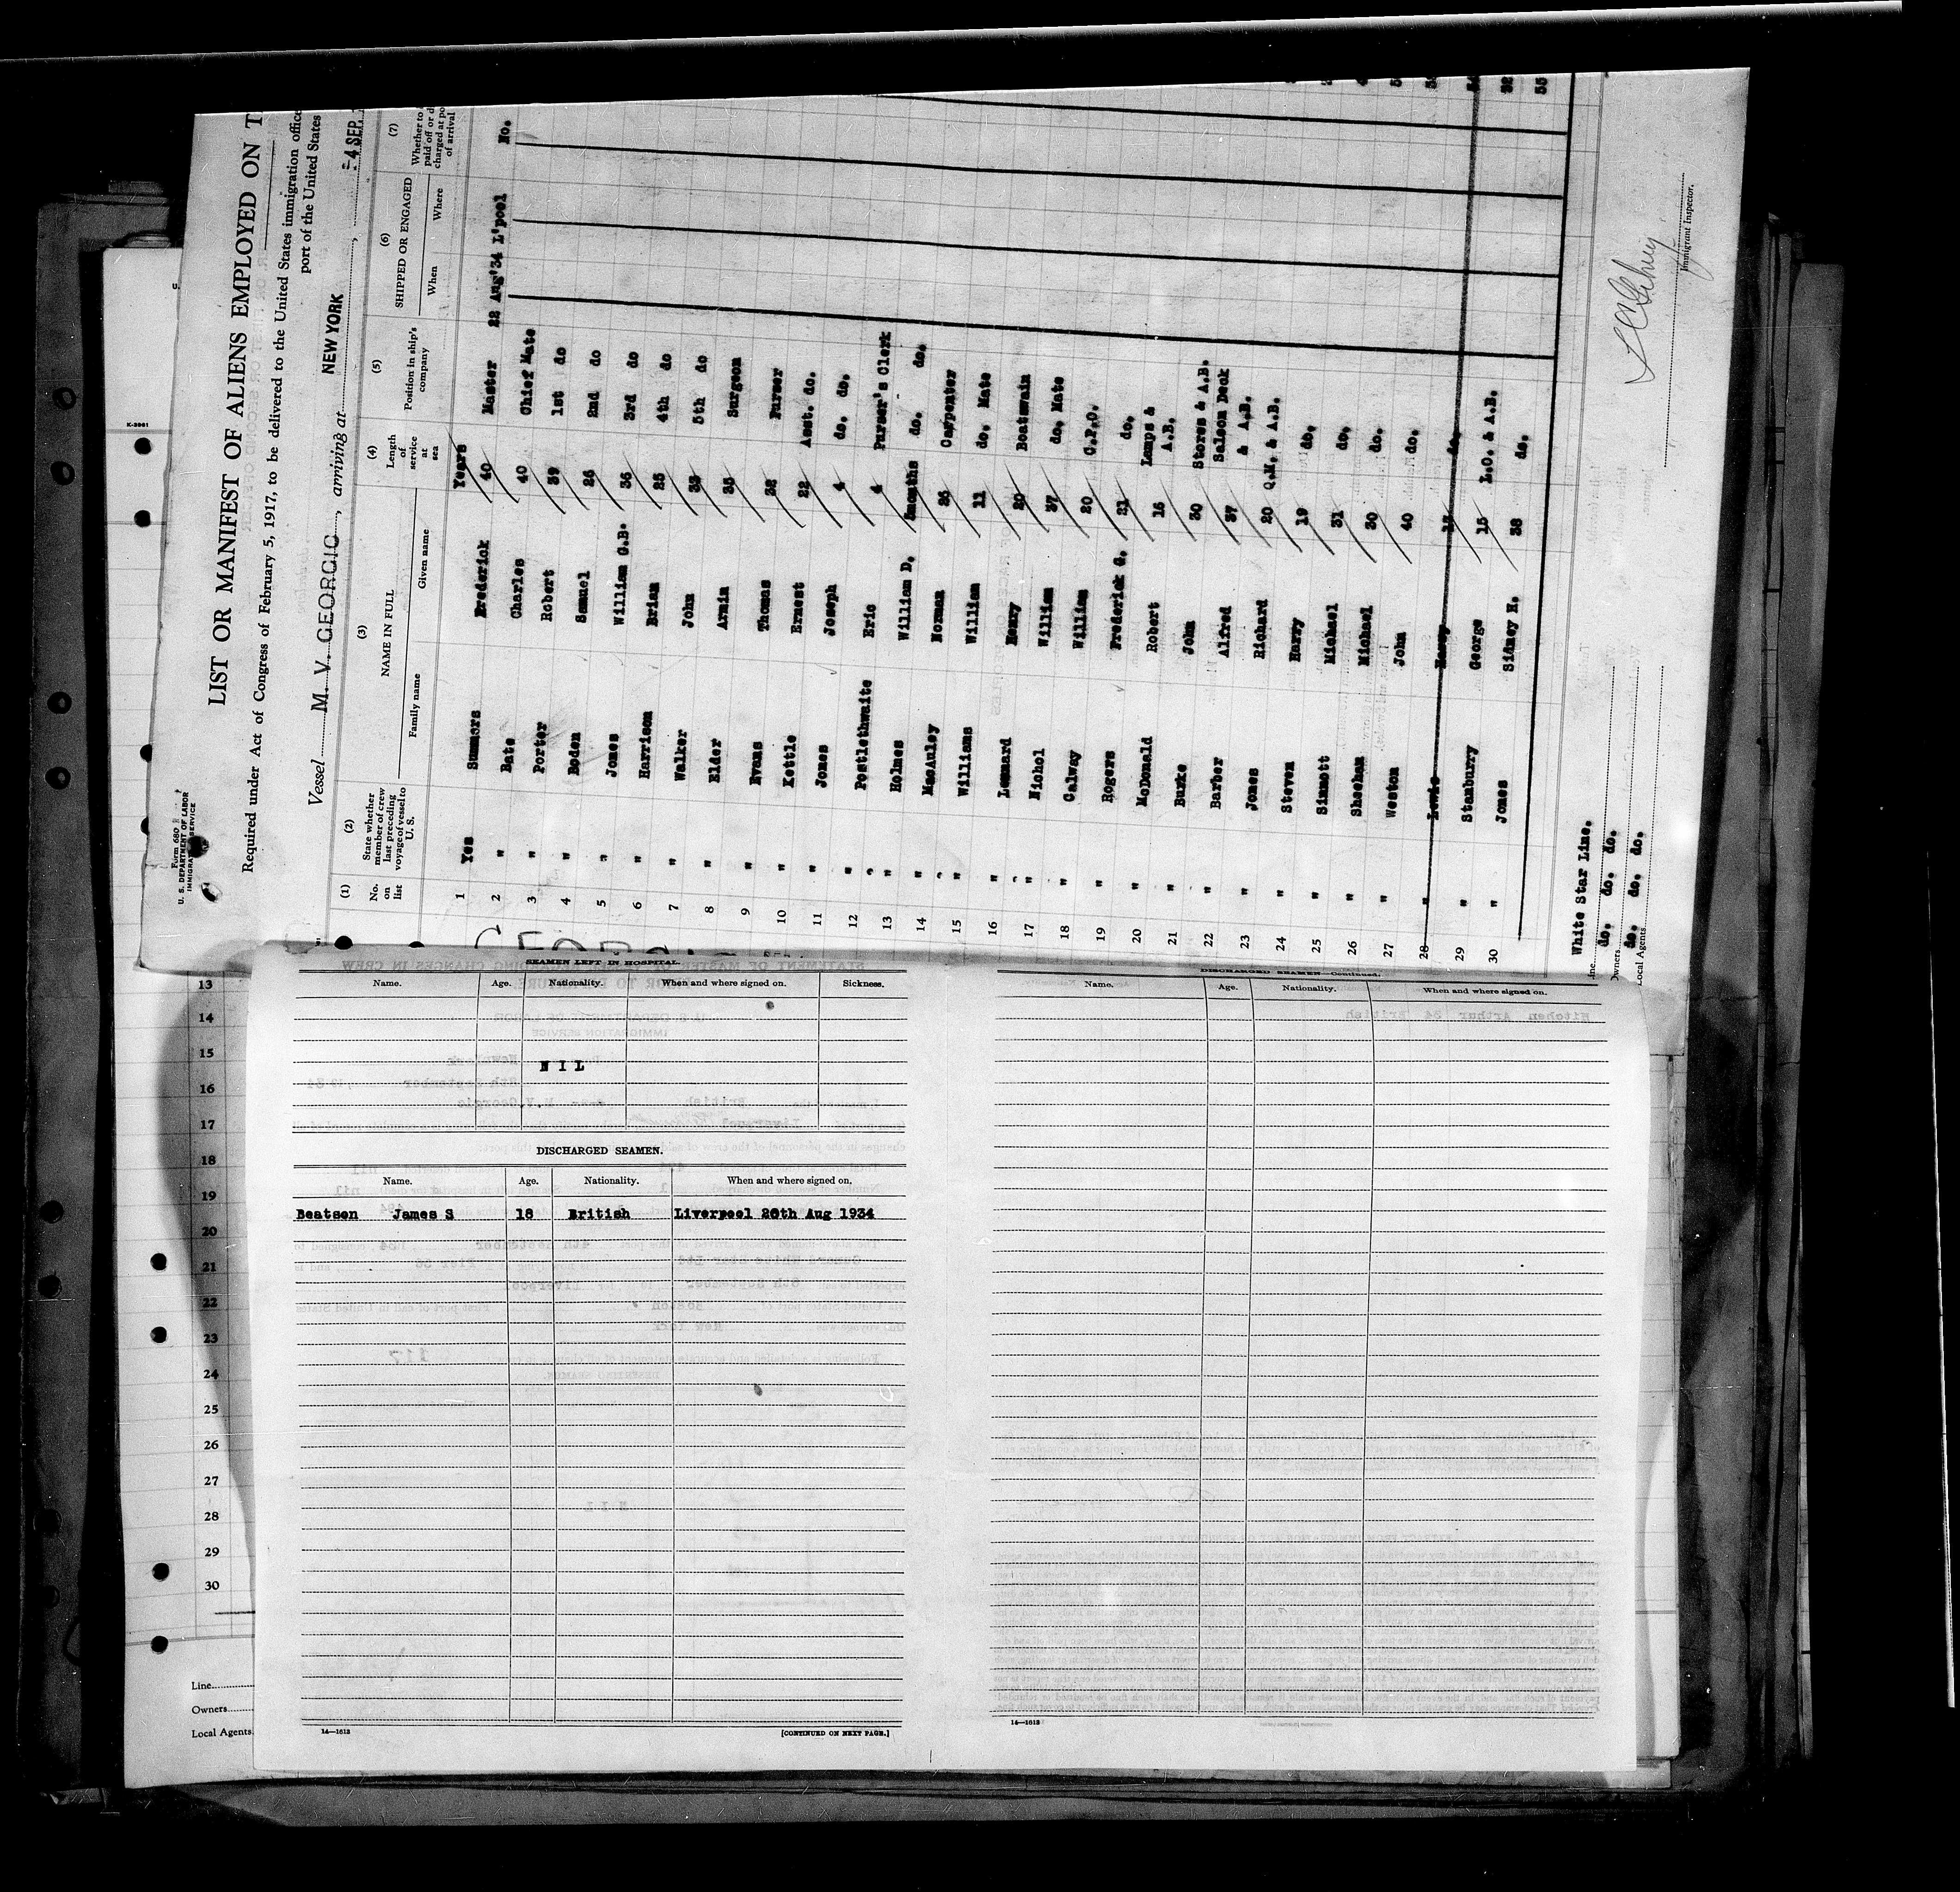 Form 680
U. S. DEPARTMENT OF LABOR
IMMIGRATION SERVICE
LIST OR MANIFEST OF ALIENS EMPLOYED ON T
Required under Act of Congress of February 5, 1917, to be delivered to the United States immigration office
port of the United States
Vessel M. V. GEORGIC, arriving at NEW YORK, -4 SEP.
(1) (2) (3) (4) (5) (6) (7)
No. on list
State whether member of crew last preceding voyage of vessel to U. S.
NAME IN FULL
Family name Given name
Length of service at sea
Position in ship's company
SHIPPED OR ENGAGED
When Where
Whether to paid off or d charged at po of arrival
Years
1 Yes Summers Frederick 40 Master 22 Aug'34 L'pool No.
2 " Bate Charles 40 Chief Mate
3 " Porter Robert 39 1st do
4 " Boden Samuel 26 2nd do
5 " Jones William G.B. 36 3rd do
6 " Harrison Brian 25 4th do
7 " Walker John 33 5th do
8 " Elder Armin 35 Surgeon
9 " Evans Thomas 32 Purser
10 " Kettle Ernest 22 Asst. do.
11 " Jones Joseph 4 do. do.
12 " Postlethwaite Eric 4 Purser's Clerk
13 " Holmes William D. months do. do.
14 " MacAuley Norman 26 Carpenter
15 " Williams William 11 do. Mate
16 " Leonard Henry 20 Boatswain
17 " Nichol William 37 do. Mate
18 " Calway William 20 C.P.O.
19 " Rogers Frederick G. 21 do.
20 " McDonald Robert 16 Lamps & A.B.
21 " Burke John 30 Stores & A.B.
22 " Barber Alfred 37 Saloon Deck & A.B.
23 " Jones Richard 20 Q.M. & A.B.
24 " Steven Harry 19 do.
25 " Sinnott Michael 31 do.
26 " Sheehan Michael 30 do.
27 " Weston John 40 do.
28 " Lewis Harry 13 do.
29 " Stanburry George 15 L.O. & A.B.
30 " Jones Sidney H. 38 do.
Line White Star Line.
Owners do. do. do.
Local Agents do. do. do.
Immigrant Inspector.
K-3961
SEAMEN LEFT IN HOSPITAL.
Name. Age. Nationality. When and where signed on. Sickness.
N I L
DISCHARGED SEAMEN.
Name. Age. Nationality. When and where signed on.
Beatson James S 18 British Liverpool 20th Aug 1934
14—1613
[CONTINUED ON NEXT PAGE.]
DISCHARGED SEAMEN—Continued.
Name. Age. Nationality. When and where signed on.
14—1613
13
14
15
16
17
18
19
20
21
22
23
24
25
26
27
28
29
30
Line
Owners
Local Agents